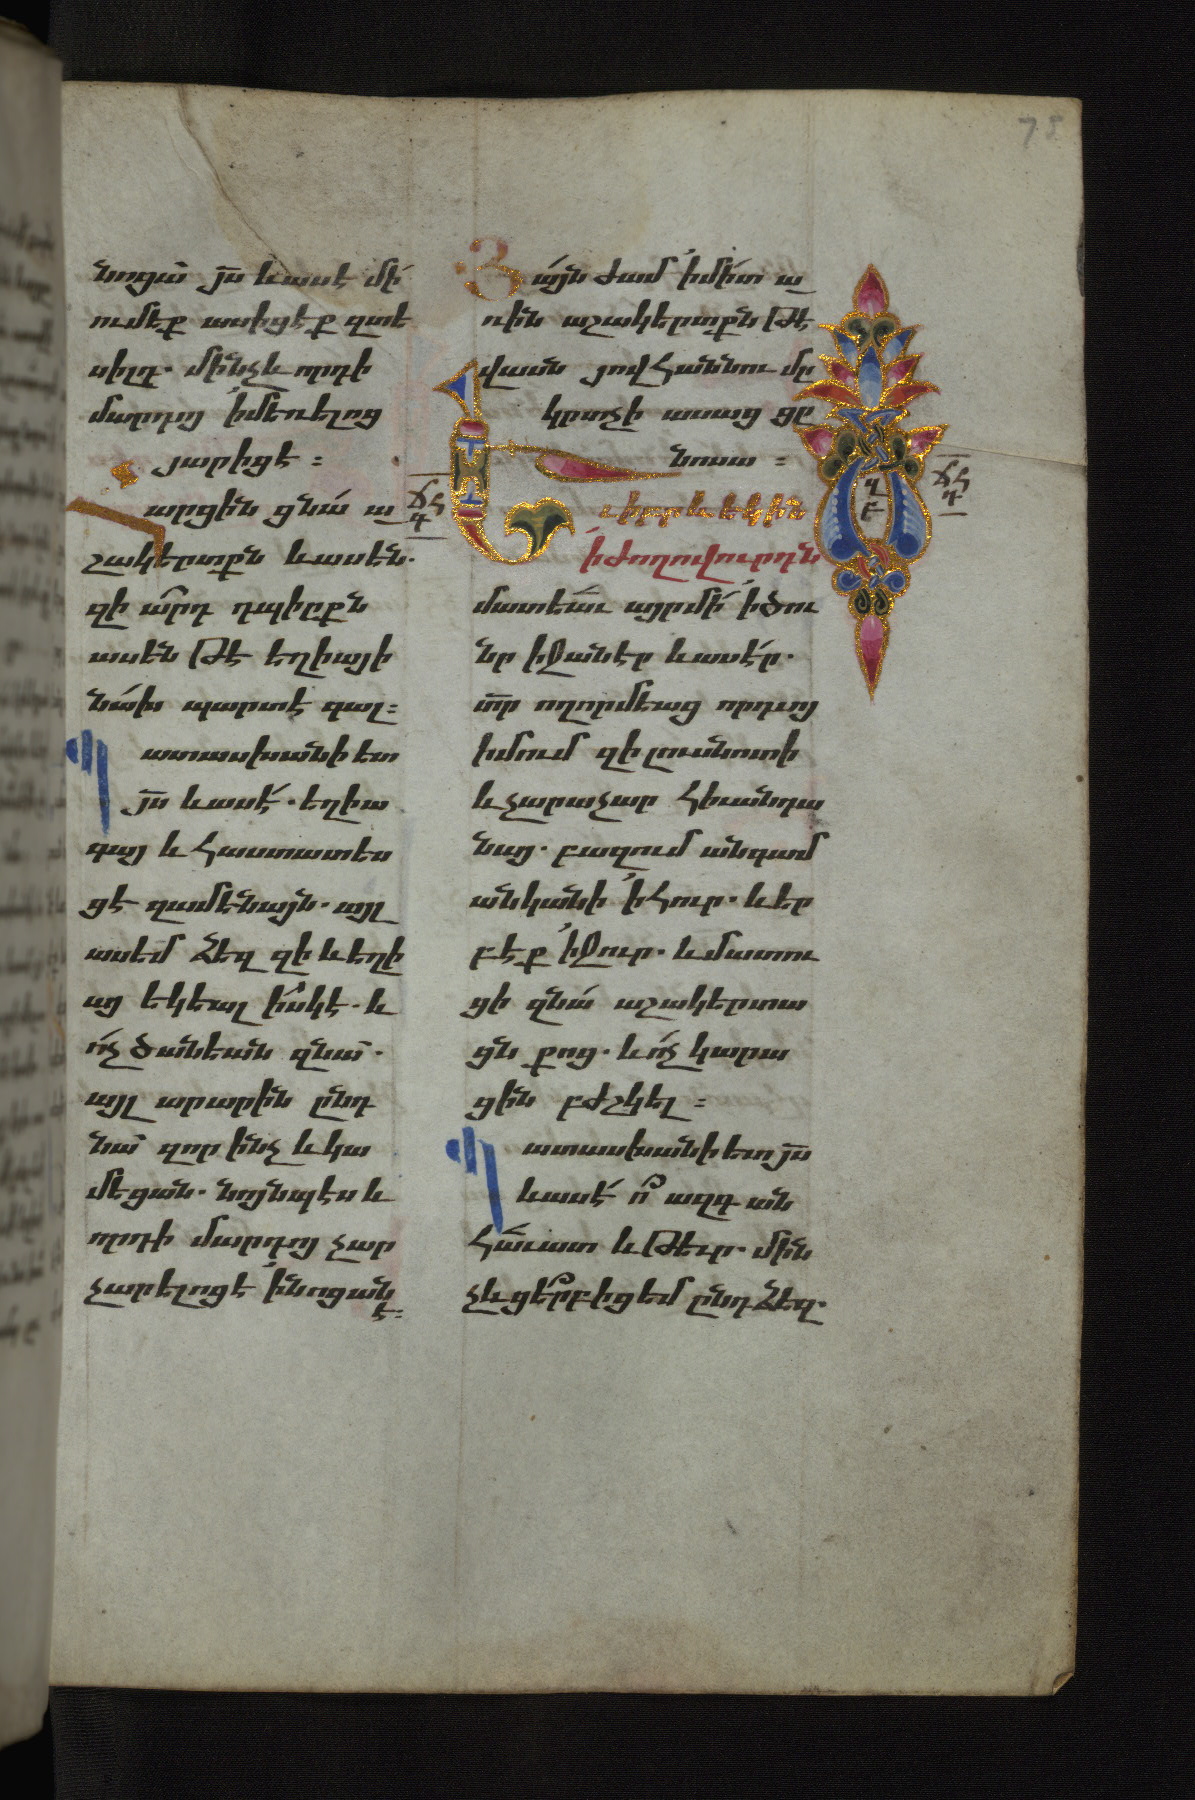 78
նոցա յս̅ և ասէ մի՛
ումեք ասիցէք զտե
սիլդ. մինչև որդի
մարդոյ ի մեռելոց
յարիցէ։
Հարցին ցնա ա
շակերտքն և ասեն.
զի արդ դպիրքն
ասեն թէ եղիայի
նախ պարտէ գալ։
Պատասխանի ետ
յս̅ և ասէ. եղիա
գայ և հաստատես
ցէ զամենայն. այլ
ասեմ ձեզ զի և եղի
այ եկեալ իսկ է. և
ոչ ծանեան զնա.
այլ արարին ընդ
նա զոր ինչ և կա
մեցան. նոյնպէս և
որդի մարդոյ չար
չարելոց է ի նոցան
է։
ՃՀ
Գ
Յայն ժամ ի միտ ա
ռին աշակերտքն թէ
վասն յովհաննու մը
կրտչի ասաց ցը
նոսա։
Եւ իբրև եկին
ի ժողովուրդն
մատեաւ այր մի ի ծու
նր իջանէր և ասէր.
տր̅ ողորմեաց որդւոյ
իմում զի լուսնոտի
և չարաչար հիւանդա
նայ. բազում անգամ
անկանի ի հուր. և եր
բեք ի ջուր. և մատու
ցի զնա աշակերտա
ցն քոց. և ոչ կարա
ցին բժշկել։
Պատասխանի ետ յս̅
և ասէ ո՞ ազգ ան
հաւատ և թեւր. մին
չև ցե՞րբ իցեմ ընդ ձեզ.
ՃՀ